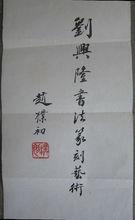 劉興隆書法篆刻藝術
趙樸初